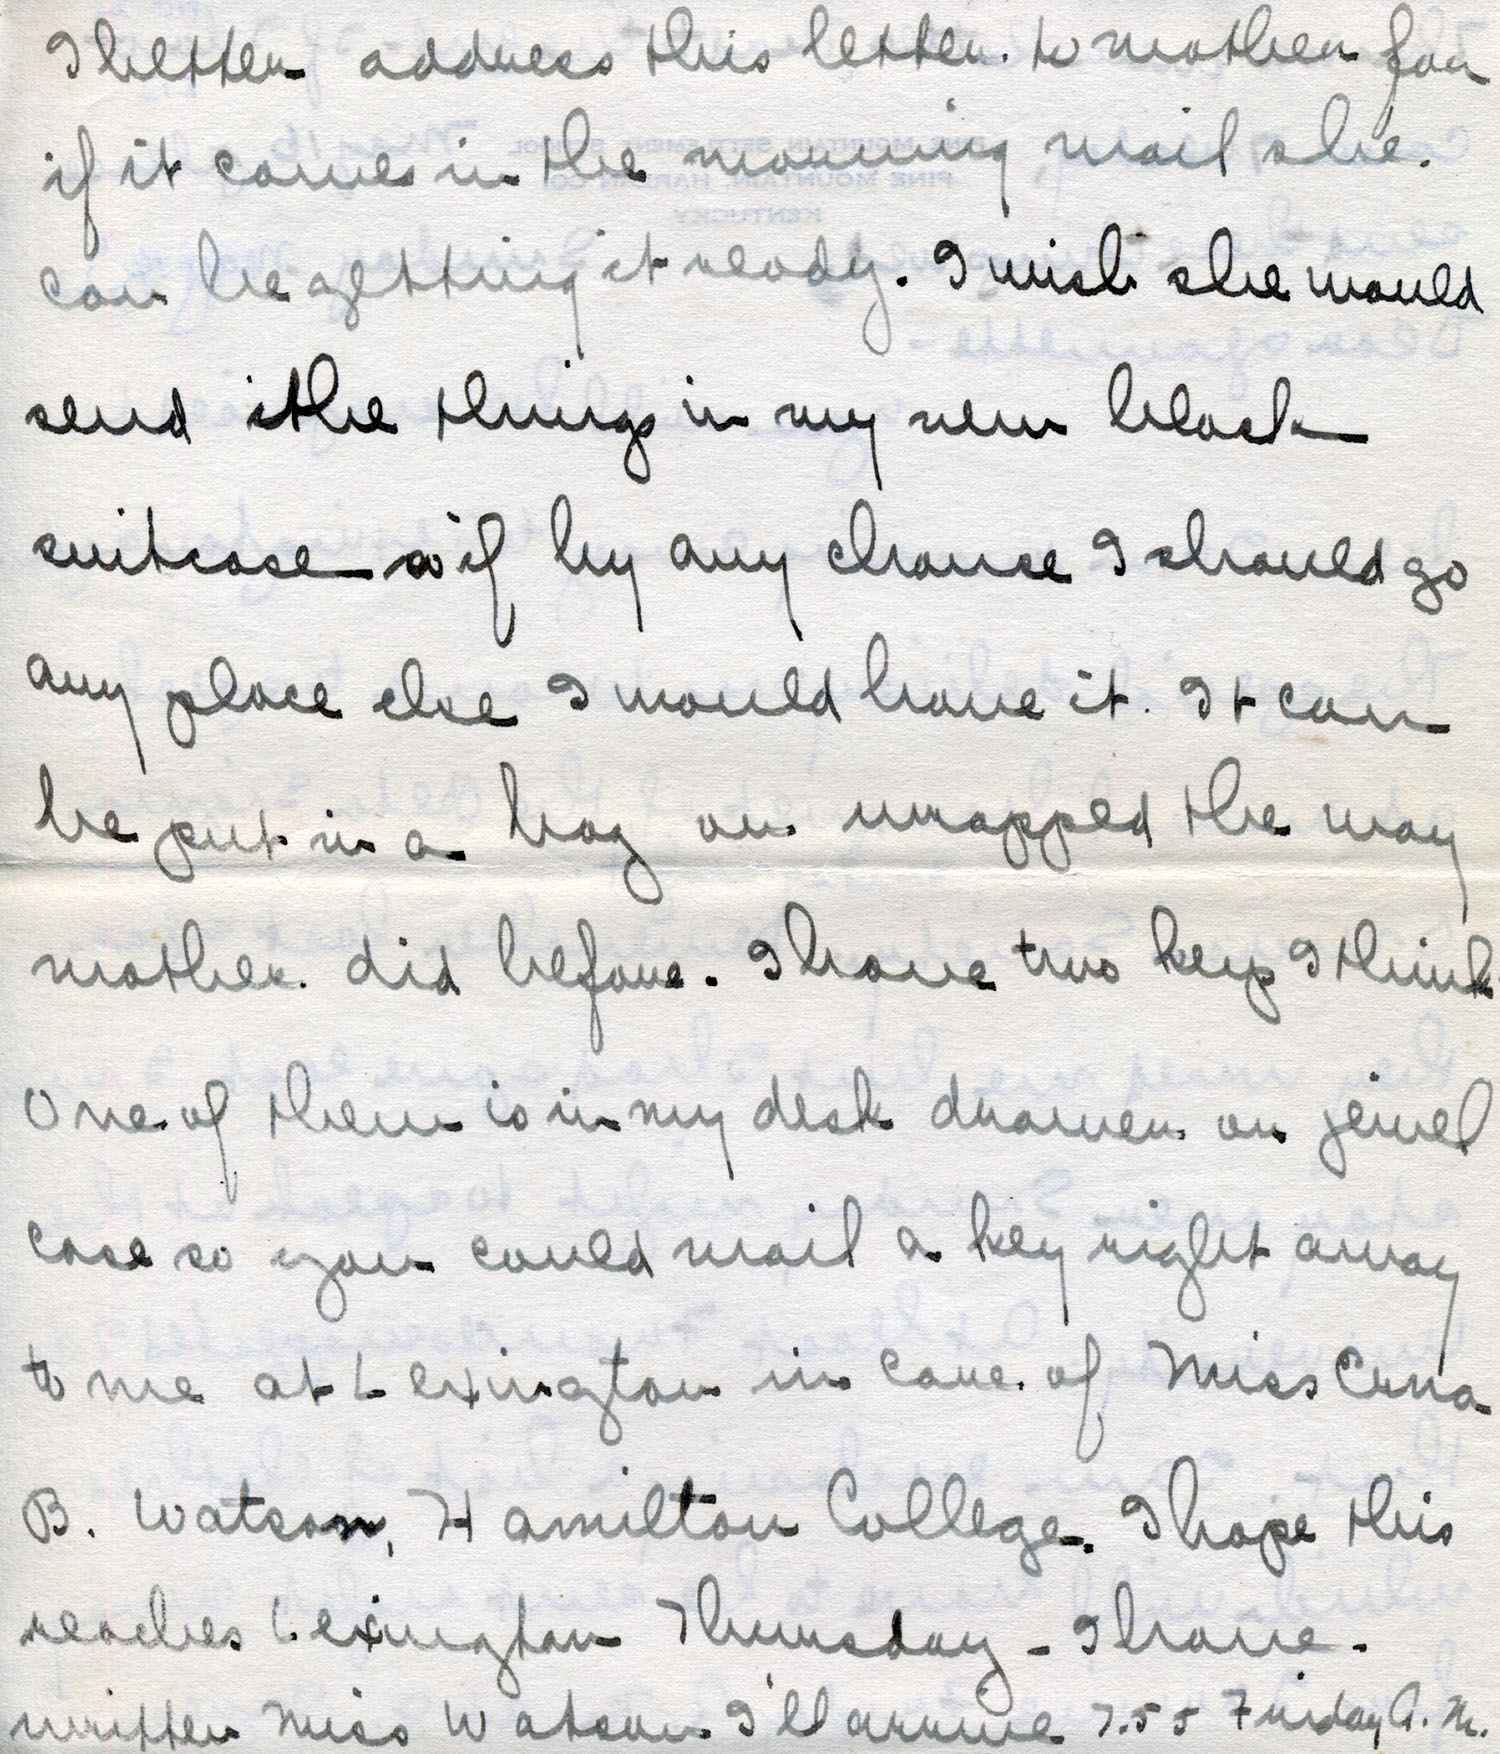 I better address this letter to mother for
if it comes in the morning mail she
can be getting it ready. I wish she would
send the things in my new black
suitcase so if by any chance I should go
any place else I would have it. It can
be put in a bag or wrapped the way
mother did before. I have two keys I think
One of them is in my desk drawer or jewel
case so you could mail a key right away
to me at Lexington in care of Miss Cuna
B. Watson, Hamilton College. I hope this
reaches Lexington Thursday - I have
written Miss Watson I'll arrive 7.55 Friday A.M.